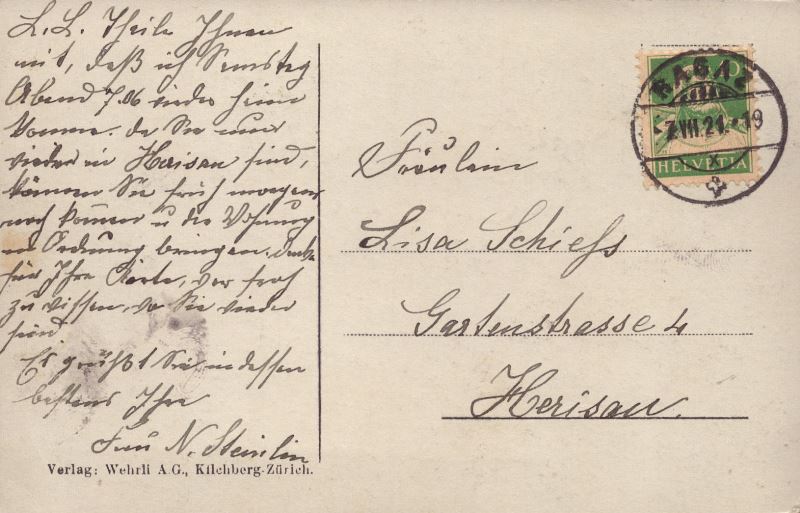 L. L. Theile Ihnen
mit, daß ich Samstag
Abend 7.06 wieder heim
komme. da Sie nun
wieder in Herisau sind,
können Sie früh morgens
noch kommen u die Wohnung
in Ordnung bringen. danke
für Ihre Karte, war froh
zu wissen, wo Sie wieder
sind.
Es grüßt Sie indessen
bestens Ihre
Frau N. Steinlin
Verlag: Wehrli A.G., Kilchberg-Zürich.
RAGAZ
7.VII.21.-19
HELVETIA
Fräulein
Lisa Schiess
Gartenstrasse 4
Herisau.